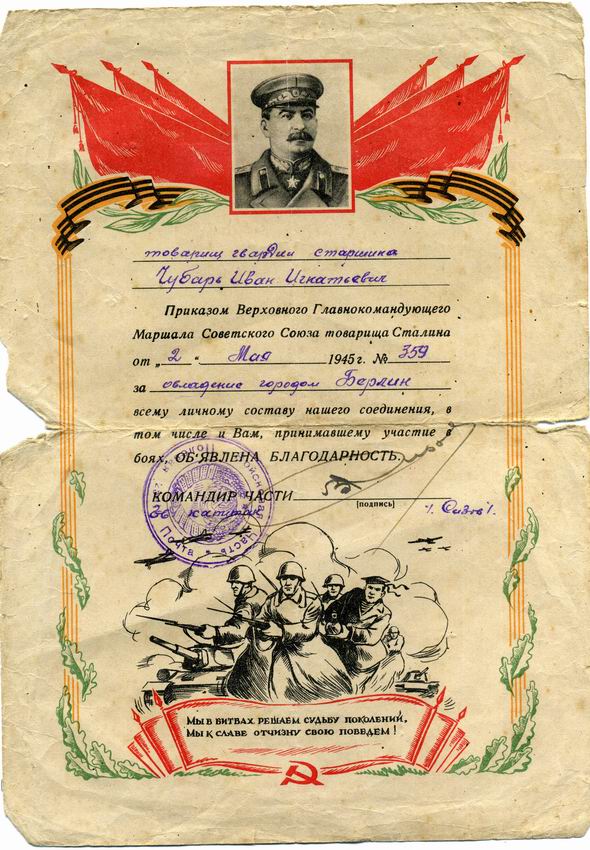 товарищ гвардии старшина
Чубарь Иван Игнатьевич
Приказом Верховного Главнокомандующего
Маршала Советского Союза товарища Сталина
от „2“ Мая 1945 г. № 359
за овладение городом Берлин
всему личному составу нашего соединения, в
том числе и Вам, принимавшему участие в
боях, ОБ'ЯВЛЕНА БЛАГОДАРНОСТЬ.
КОМАНДИР ЧАСТИ
(подпись)
гв капитан
Почта
часть
МЫ В БИТВАХ РЕШАЕМ СУДЬБУ ПОКОЛЕНИЙ,
МЫ К СЛАВЕ ОТЧИЗНУ СВОЮ ПОВЕДЕМ!